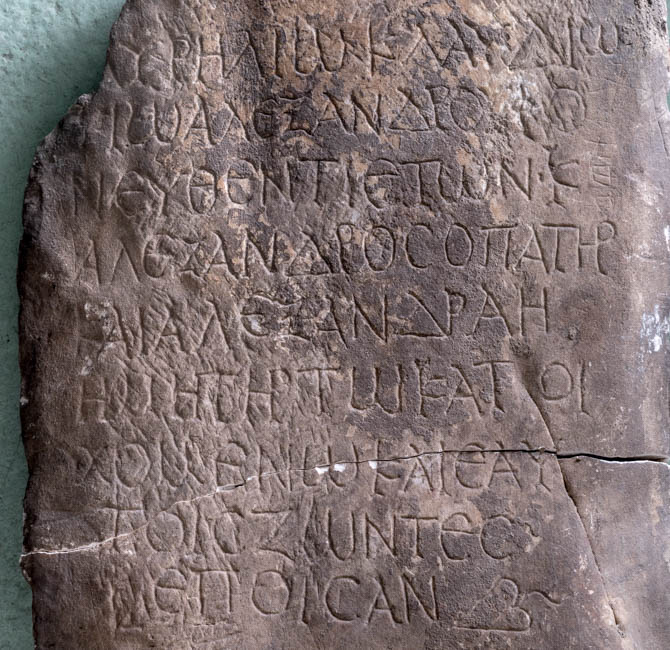 ΑΥΡΗΛΙΕΩ ΚΛΑΥΔΙΩ
ΑΛΕΞΑΝΔΡΟ
ΝΕΥΘΕΝΤΙ ΕΤΩΝ Ε
ΑΛΕΞΑΝΔΡΟϹ Ο ΠΑΤΗΡ
ΚΑΙ ΑΛΕΞΑΝΔΡΑ Η
ΜΗΤΗΡ ΤΩ ΚΑΤΟΙ
ΧΟΜΕΝΩ ΚΑΙ ΕΑΥ
ΤΟΙϹ ΖΩΝΤΕϹ
ΕΠΟΙϹΑΝ